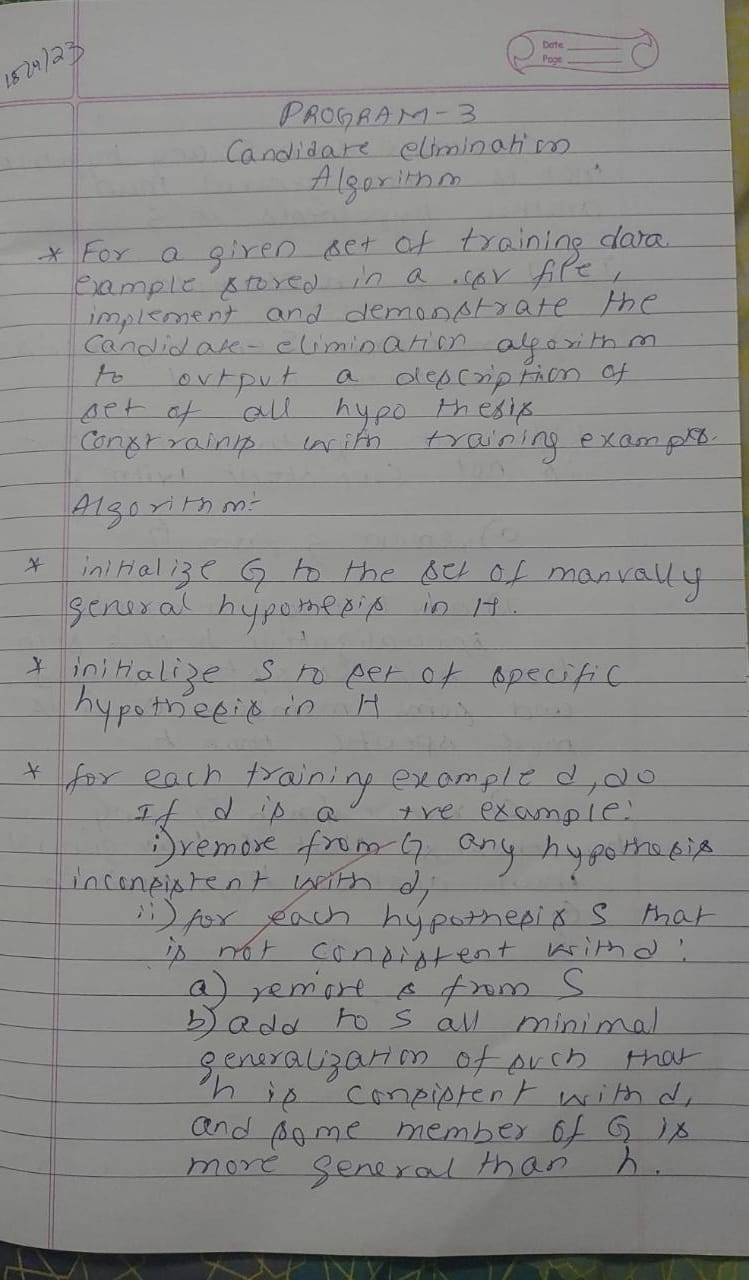 Date
Page
PROGRAM-3
Candidate elimination
Algorithm
* For a given set of training data
example stored in a .csv file,
implement and demonstrate the
Candidate-elimination algorithm
to output a description of
set of all hypothesis
Constraints with training examples.
Algorithm:-
* initialize G to the set of manually
general hypothesis in H.
* initialize S to set of specific
hypothesis in H
* for each training example d, do
If d is a +ve example:
i) remove from G any hypothesis
inconsistent with d,
ii) for each hypothesis S that
is not consistent with d:
a) remove s from S
b) add to S all minimal
generalization of such that
h is consistent with d,
and some member of G is
more general than h.